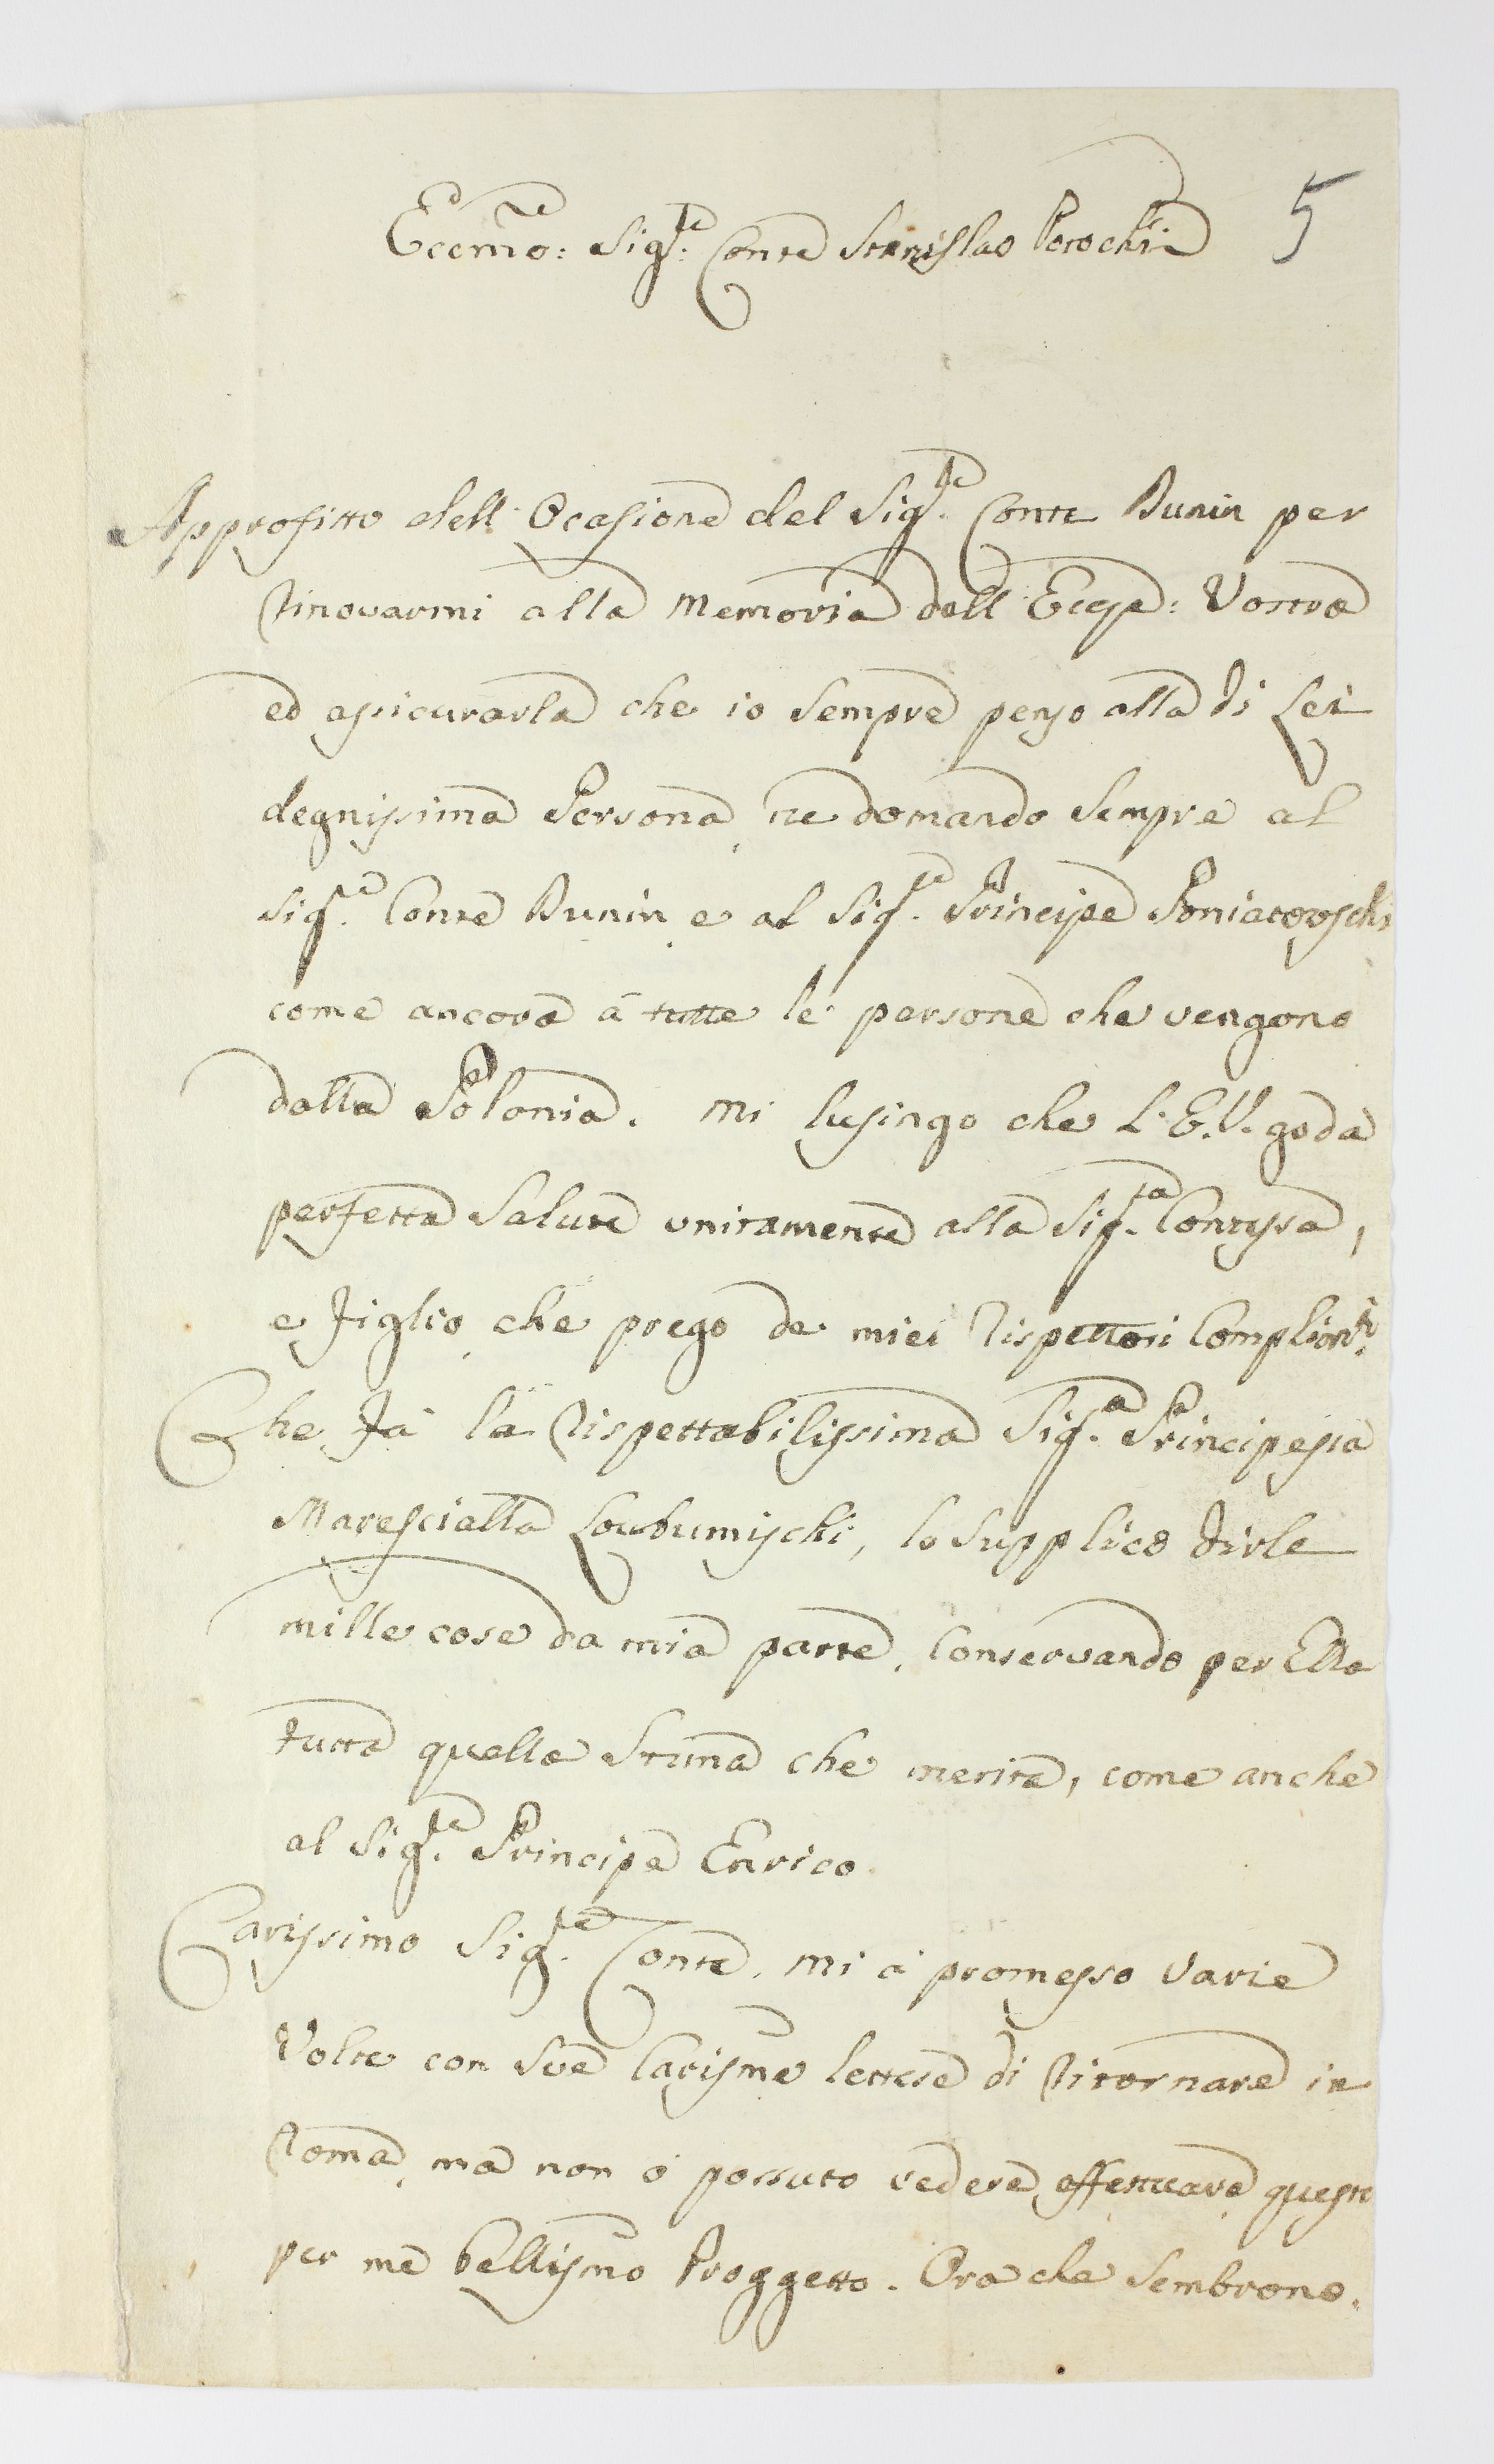 Eccmo: Sigre: Conte Stanislao Potochi 5
Approfitto dell'Ocasione del Sigre. Conte Bunin per
Rinovarmi alla Memoria dell'Eccza: Vostra
ed assicurarla che io sempre penso alla di Lei
degnissima Persona, ne domando sempre al
Sigre. Conte Bunin, e al Sigre. Principe Poniatovschi
come ancora à tutte le persone che vengono
dalla Polonia. Mi lusingo che L'E.V. goda
perfetta Salute unitamente alla Sigra. Contessa,
e figlio, che prego de miei Rispettosi Complimti.
Che fà la Rispettabilissima Siga. Principessa
Marescialla Loubumischi, lo supplico dirle
mille cose da mia parte, Conservando per Ella
tutta quella Stima che merita, come anche
al Sigre. Principe Enrico.
Carissimo Sigre. Conte, mi à promesso varie
Volte con Sue Carisme lettere di Ritornare in
Roma, ma non ò possuto vedere effettuare questo
per me bellismo Proggetto. Ora che Sembrono